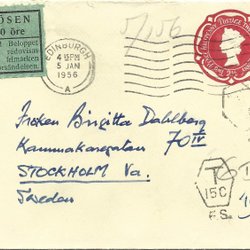 ÖSEN
0 öre
Beloppet
redovisas
felmärken
försändelsen.
EDINBURGH
4 15PM
5 JAN
1956
A
5/156
POSTAGE
Fröken Birgitta Dahlberg
Kammakaregatan 70 IV
STOCKHOLM Va.
Sweden
T
15C
F.S.